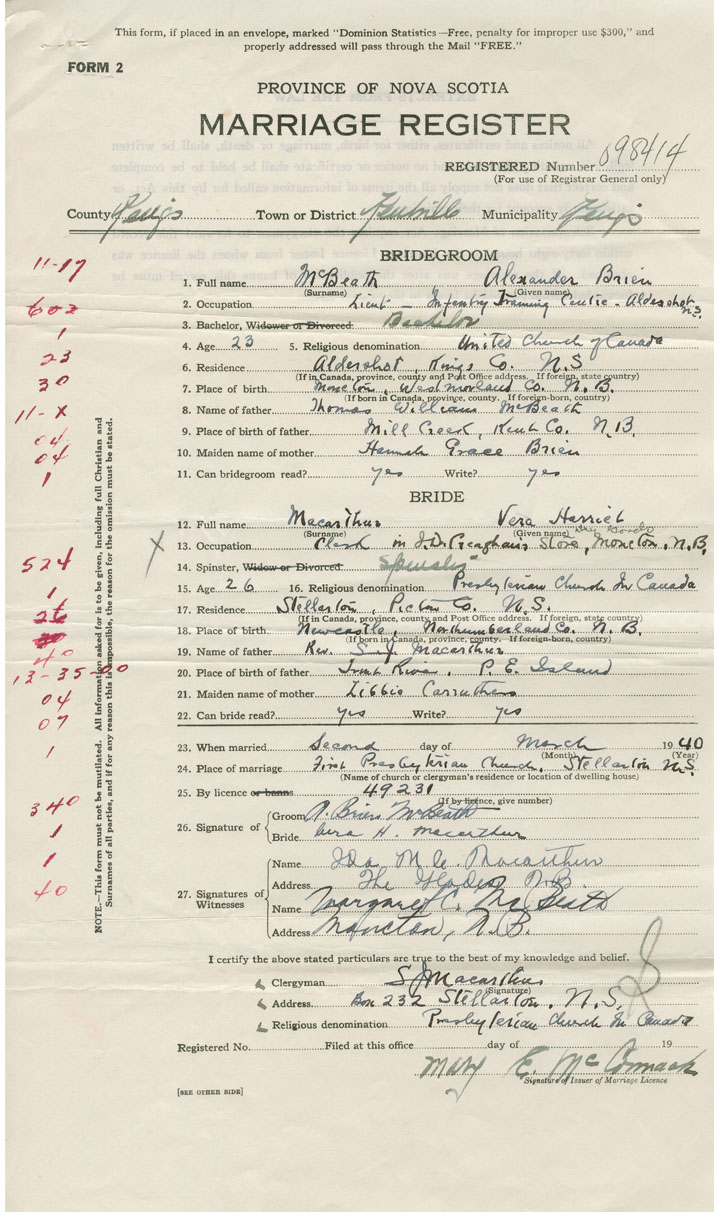 This form, if placed in an envelope, marked "Dominion Statistics—Free, penalty for improper use $300," and
properly addressed will pass through the Mail "FREE."
FORM 2
PROVINCE OF NOVA SCOTIA
MARRIAGE REGISTER
REGISTERED Number 098414
(For use of Registrar General only)
County Kings Town or District Kentville Municipality Kings
BRIDEGROOM
11-17
1. Full name McBeath Alexander Brien
(Surname) (Given name)
602
2. Occupation Lieut - Infantry Training Centre - Aldershot N.S.
1
3. Bachelor, Widower or Divorced Bachelor
23
4. Age 23 5. Religious denomination United Church of Canada
6. Residence Aldershot, Kings Co. N.S
30
(If in Canada, province, county and Post Office address. If foreign, state country)
7. Place of birth Moncton, Westmorland Co. N.B.
(If born in Canada, province, county. If foreign-born, country)
11-X
8. Name of father Thomas William McBeath
04
9. Place of birth of father Mill Creek, Kent Co. N.B.
04
10. Maiden name of mother Hannah Grace Brien
1
11. Can bridegroom read? yes Write? yes
BRIDE
12. Full name Macarthur Vera Harriet
(Surname) (Given name) Dry Goods
X
13. Occupation Clerk in Store, Moncton, N.B.
524
14. Spinster, Widow or Divorced Spinster
1
15. Age 26 16. Religious denomination Presbyterian Church In Canada
26
17. Residence Stellarton, Pictou Co. N.S.
(If in Canada, province, county and Post Office address. If foreign, state country)
18. Place of birth Newcastle, Northumberland Co. N.B.
(If born in Canada, province, county. If foreign-born, country)
40
19. Name of father Rev. S.J. Macarthur
13-35-00
20. Place of birth of father P.E. Island
04
21. Maiden name of mother Libbie Carruthers
07
22. Can bride read? yes Write? yes
1
23. When married Second day of March 1940
(Month) (Year)
24. Place of marriage First Presbyterian Church, Stellarton N.S.
(Name of church or clergyman's residence or location of dwelling house)
340
25. By licence or banns 49231
(If by licence, give number)
1
26. Signature of Groom A. Brien McBeath
Bride Vera H. Macarthur
1
Name Ida M. C. Macarthur
40
27. Signatures of Witnesses
Address N.B.
Name Margaret C. McBeath
Address Moncton, N.B.
NOTE.—This form must not be mutilated. All information asked for is to be given, including full Christian and
Surnames of all parties, and if for any reason this is impossible, the reason for the omission must be stated.
I certify the above stated particulars are true to the best of my knowledge and belief.
Clergyman S J Macarthur
(Signature)
Address Box 232 Stellarton, N.S.
Religious denomination Presbyterian Church In Canada
Registered No. Filed at this office day of 19
Mary E. McCormack
Signature of Issuer of Marriage Licence
[SEE OTHER SIDE]